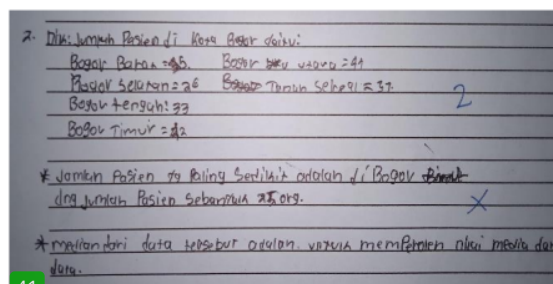 2. Dik: Jumlah Pasien di Kota Bogor yaitu:
Bogor Barat = 45 Bogor utara = 41
Bogor Selatan = 26 Tanah Sehegi = 37
Bogor tengah: 33
Bogor Timur = 42
2
* Jamlah Pasien yg Paling Sedikit adalah di Bogor Barat
dng Jumlah Pasien Sebanyak 25 org.
* median dari data tersebut adalah. untuk memperoleh nilai media dar
data.
41